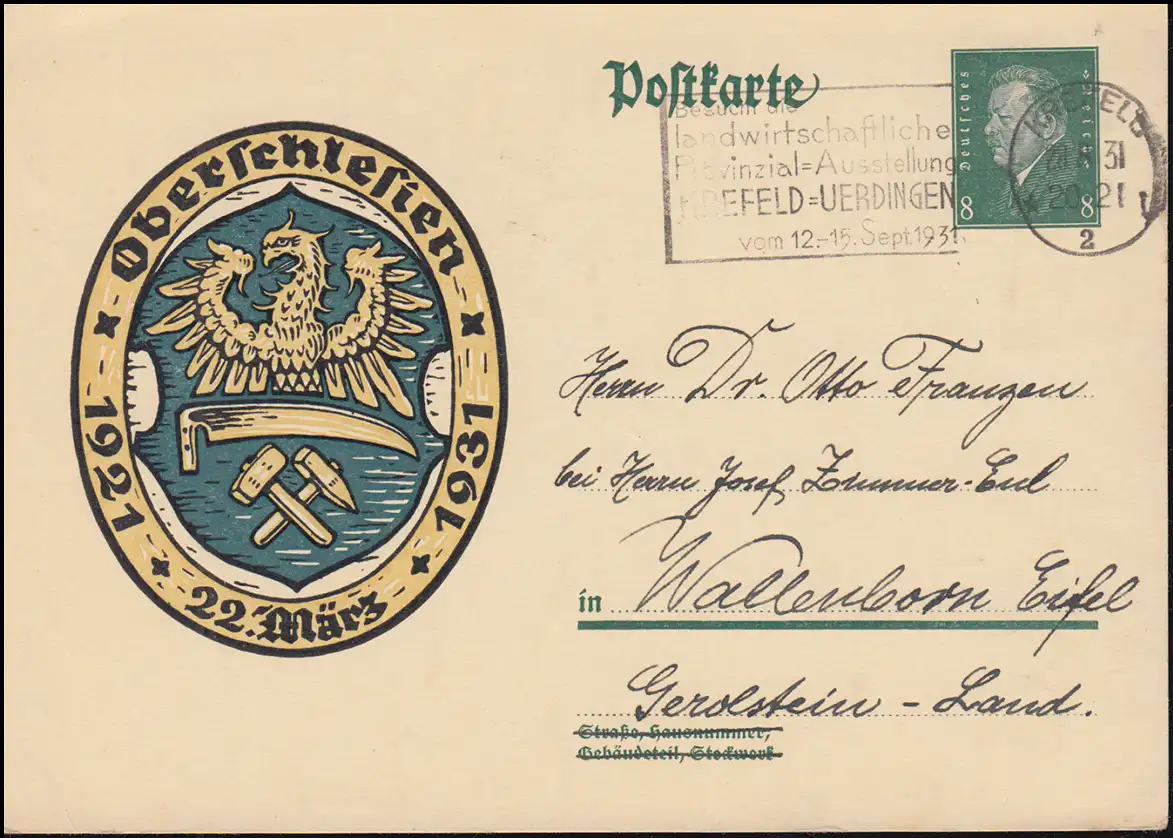 Postkarte
Besucht die
landwirtschaftliche
Provinzial=Ausstellung
KREFELD=UERDINGEN
vom 12.-15. Sept. 1931.
Deutsches Reich
8 8
KREFELD
31
20-21
2
Oberschlesien
1921 1931
22. März
Herrn Dr. Otto Franzen
bei Herrn Josef Zimmer-Eul
in Wallenborn Eifel
Gerolstein - Land.
Straße, Hausnummer,
Gebäudeteil, Stockwerk